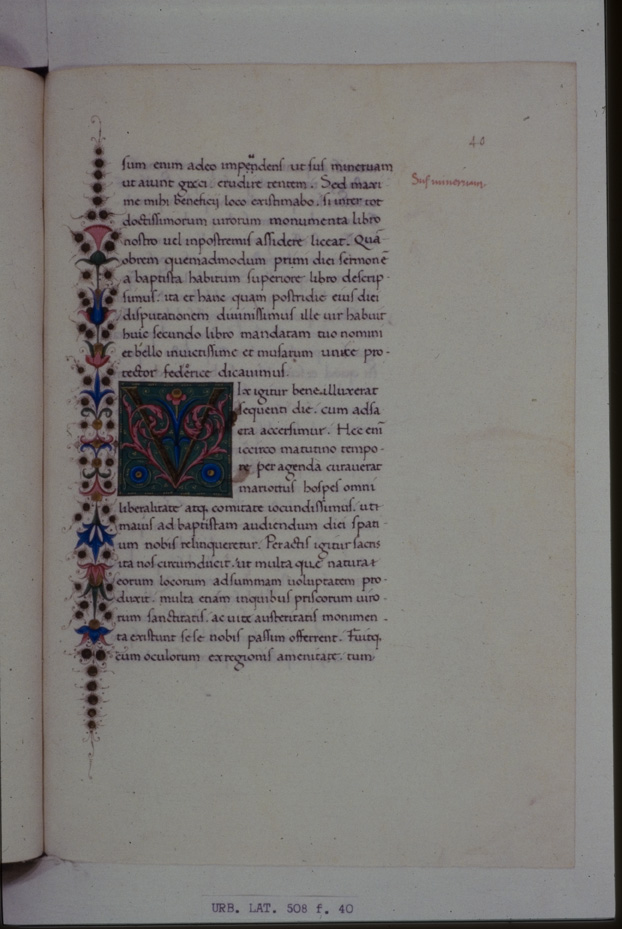 40
sum enim adeo impendens ut sus mineruam
Sus mineruam.
ut aiunt greci. erudire temtem. Sed maxi
me mihi beneficij loco existimabo. si inter tot
doctissimorum uirorum monumenta libro
nostro uel inpostremis assidere liceat. Quã
obrem quemadmodum primi diei sermonẽ
a baptista habitum superiore libro descrip-
simus. ita et hanc quam postridie eius diei
disputationem diuinissimus ille uir habuit
huic secundo libro mandatam tuo nomini
et bello inuictissime et musarum unice pro-
tector federice dicauimus.
VIx igitur bene illuxerat
sequenti die. cum ad sa
cra accersimur. Hec enĩ
iccirco matutino tempo-
re peragenda curauerat
mariottus hospes omni
liberalitate atq. comitate iocundissimus. uti
maius ad baptistam audiendum diei spati-
um nobis relinqueretur. Peractis igitur sacris
ita nos circumducit. ut multa que natura
eorum locorum ad summam uoluptatem pro-
duxit. multa etiam in quibus priscorum uiro-
rum sanctitatis. ac uite austeritatis monimen-
ta existunt sese nobis passim offerrent. Fuitq.
cum oculorum ex regionis amenitate. tum
URB. LAT. 508 f. 40